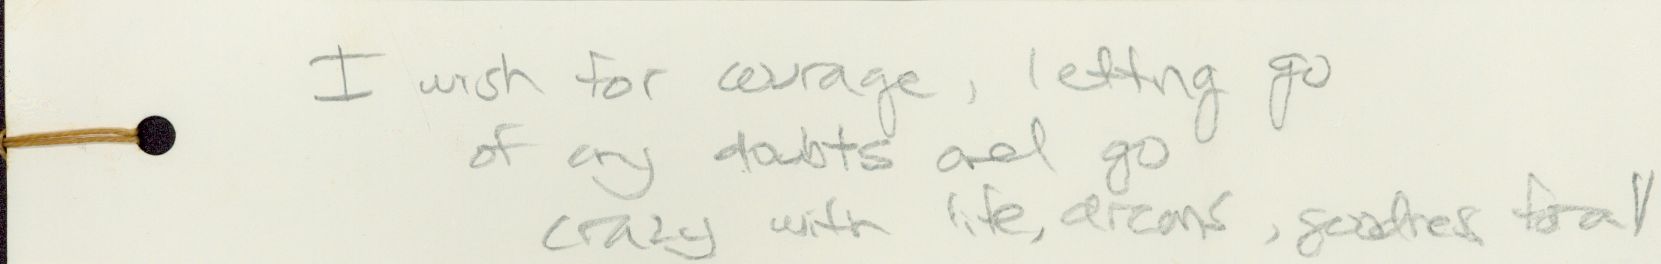 I wish for courage, letting go
of any doubts and go
crazy with life, dreams, goodness for all